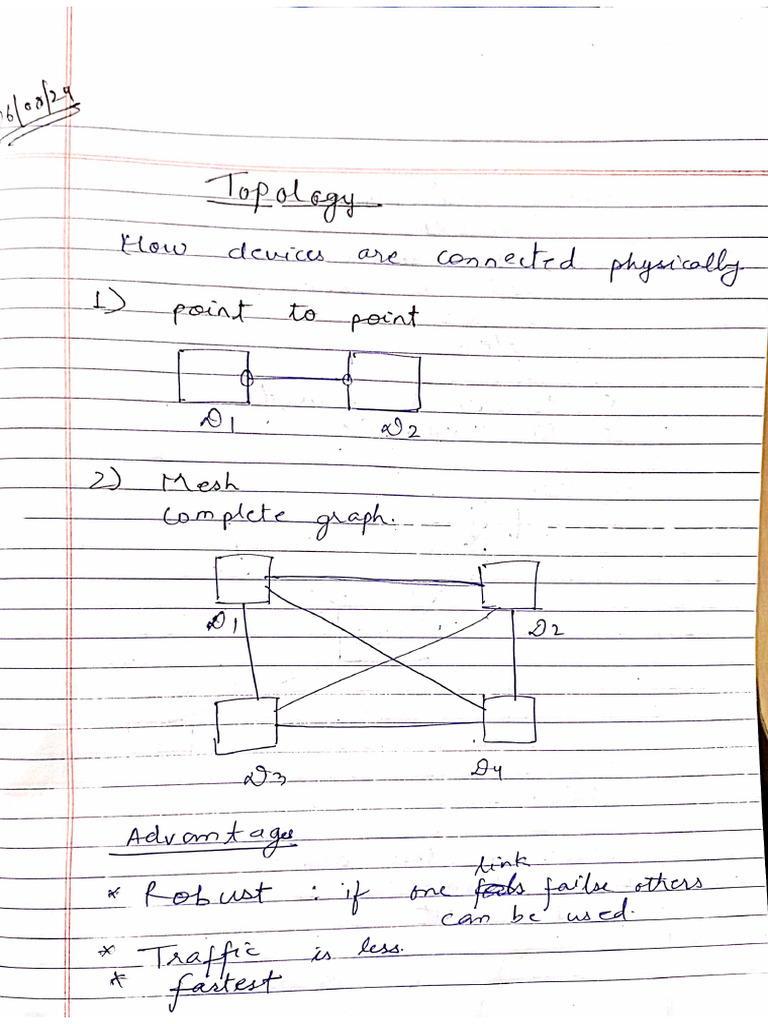 06/08/24
Topology
How devices are connected physically
1) point to point
D1 D2
2) Mesh
Complete graph.
D1 D2
D3 D4
Advantages
link
* Robust : if one failse others
can be used.
* Traffic is less.
* fastest